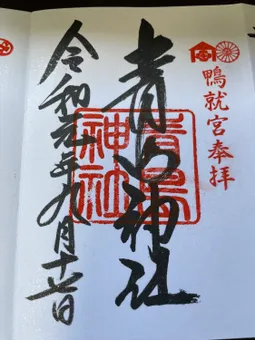 鴨就宮奉拝
青島神社
青島
神社
令和元年九月十日